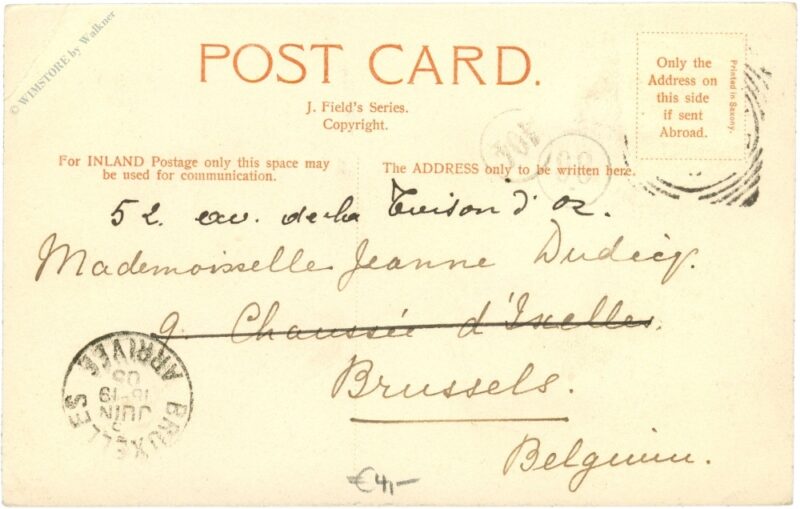 © WIMSTORE by Walkner
POST CARD.
J. Field's Series.
Copyright.
Only the
Address on
this side
if sent
Abroad.
Printed in Saxony.
For INLAND Postage only this space may
be used for communication.
The ADDRESS only to be written here.
52 av. de la Toison d'Or.
Mademoisselle Jeanne Dudicq.
9. Chaussée d'Ixelles.
Brussels.
Belgium.
BRUXELLES
JUIN
18-19
05
ARRIVÉE
€4,-